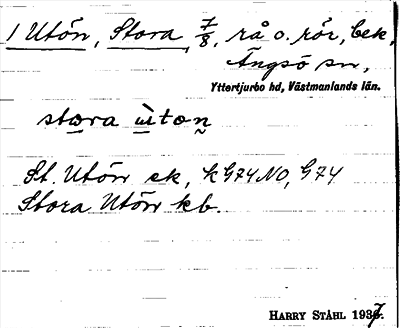 1 Utön, Stora, 7/8, rå o. rör, bek,
Ängsö sn,
Yttertjurbo hd, Västmanlands län.
stæra ùtœn̰
St. Utön ek, k G74 NO, G74
Stora Utön kb.
HARRY STÅHL 1937.